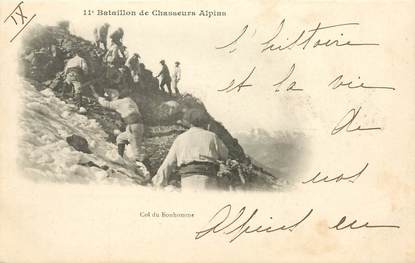 IX
11e Bataillon de Chasseurs Alpins
l'histoire
et la vie
de
nos
Alpins en
Col du Bonhomme